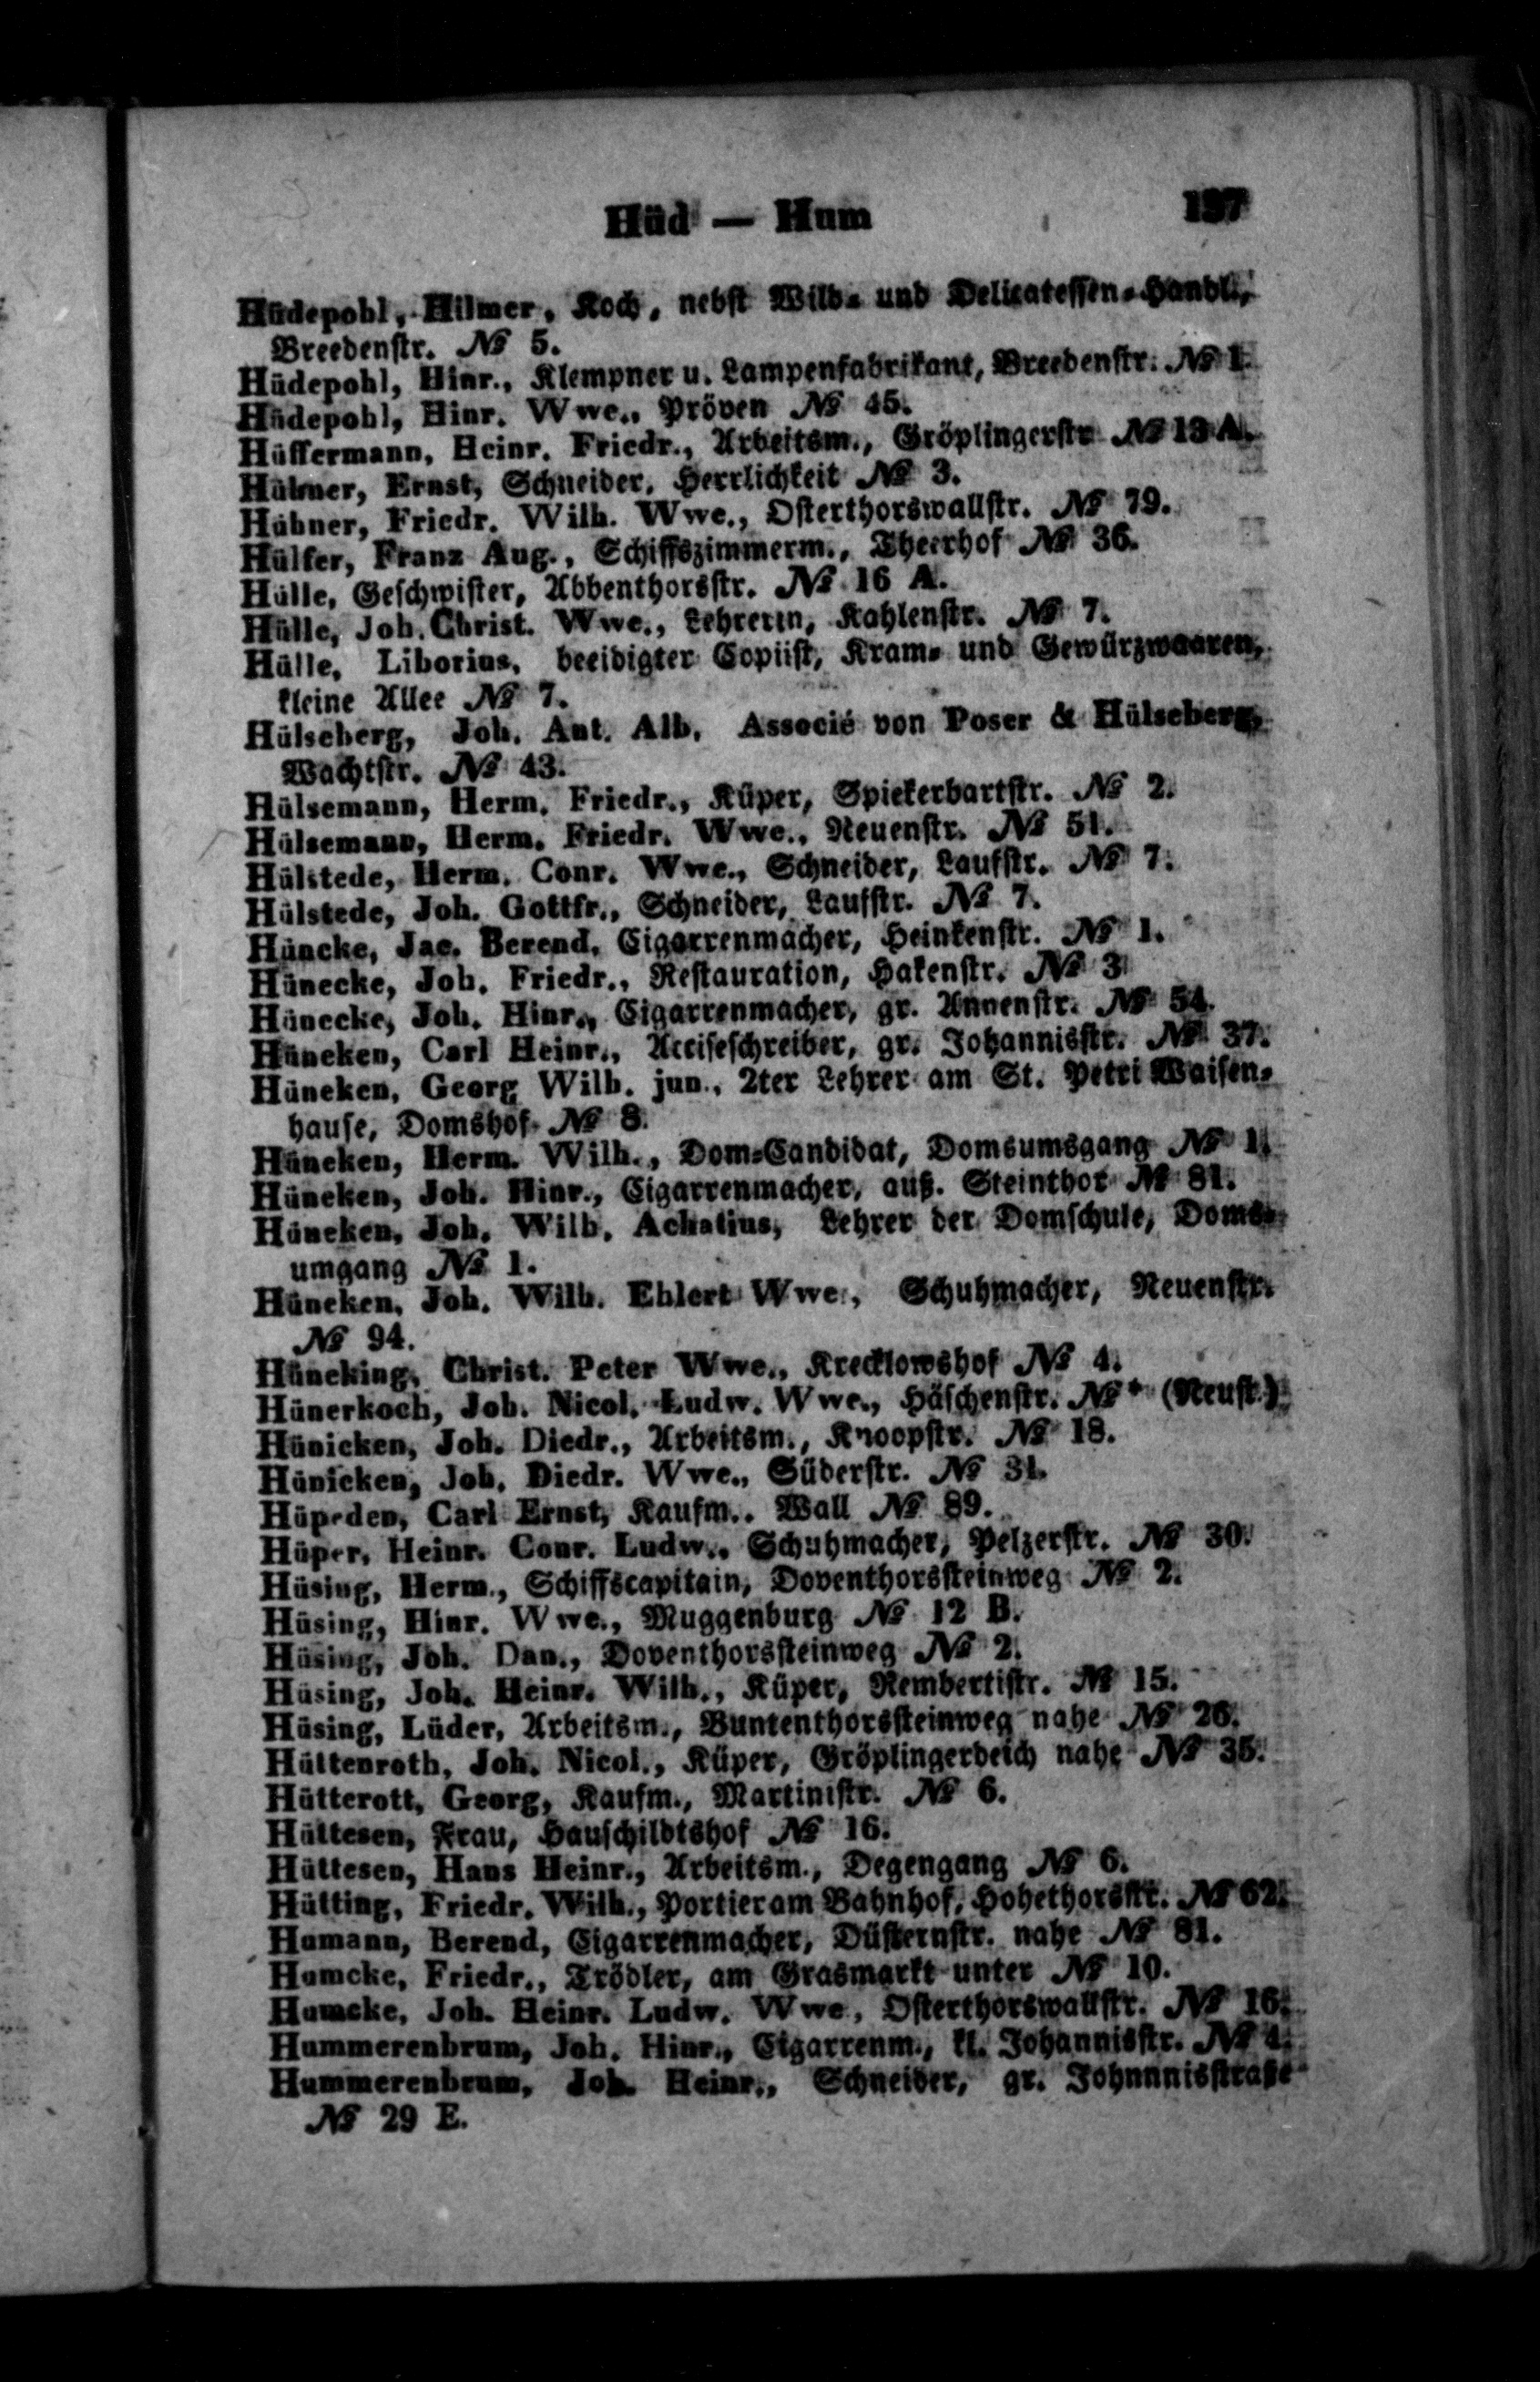 Hüd — Hum 137
Hüdepohl, Hilmer, Koch, nebst Wild- und Delicatessen-Handl.,
Breedenstr. № 5.
Hüdepohl, Hinr., Klempner u. Lampenfabrikant, Breedenstr. № 1.
Hüdepohl, Hinr. Wwe., Pröven № 45.
Hüffermann, Heinr. Friedr., Arbeitsm., Gröplingerstr. № 13 A.
Hülmer, Ernst, Schneider, Herrlichkeit № 3.
Hübner, Friedr. Wilh. Wwe., Osterthorswallstr. № 79.
Hülfer, Franz Aug., Schiffszimmerm., Theerhof № 36.
Hülle, Geschwister, Abbenthorsstr. № 16 A.
Hülle, Joh. Christ. Wwe., Lehrerin, Kahlenstr. № 7.
Hülle, Liborius, beeidigter Copiist, Kram- und Gewürzwaaren,
kleine Allee № 7.
Hülseberg, Joh. Ant. Alb. Associé von Poser & Hülseberg,
Wachtstr. № 43.
Hülsemann, Herm. Friedr., Küper, Spiekerbartstr. № 2.
Hülsemann, Herm. Friedr. Wwe., Neuenstr. № 51.
Hülstede, Herm. Conr. Wwe., Schneider, Laufstr. № 7.
Hülstede, Joh. Gottfr., Schneider, Laufstr. № 7.
Hüncke, Jac. Berend, Cigarrenmacher, Heinkenstr. № 1.
Hünecke, Joh. Friedr., Restauration, Hakenstr. № 3
Hünecke, Joh. Hinr., Cigarrenmacher, gr. Annenstr. № 54.
Hüneken, Carl Heinr., Acciseschreiber, gr. Johannisstr. № 37.
Hüneken, Georg Wilh. jun., 2ter Lehrer am St. Petri Waisen-
hause, Domshof № 8.
Hüneken, Herm. Wilh., Dom-Candidat, Domsumsgang № 1.
Hüneken, Joh. Hinr., Cigarrenmacher, auß. Steinthor № 81.
Hüneken, Joh. Wilh. Achatius, Lehrer der Domschule, Doms-
umgang № 1.
Hüneken, Joh. Wilh. Ehlert Wwe., Schuhmacher, Neuenstr.
№ 94.
Hüneking, Christ. Peter Wwe., Krecklowshof № 4.
Hünerkoch, Joh. Nicol. Ludw. Wwe., Häschenstr. №* (Neust.)
Hünicken, Joh. Diedr., Arbeitsm., Knoopstr. № 18.
Hünicken, Joh. Diedr. Wwe., Süderstr. № 31.
Hüpeden, Carl Ernst, Kaufm.. Wall № 89.
Hüper, Heinr. Conr. Ludw., Schuhmacher, Pelzerstr. № 30.
Hüsing, Herm., Schiffscapitain, Doventhorssteinweg № 2.
Hüsing, Hinr. Wwe., Muggenburg № 12 B.
Hüsing, Joh. Dan., Doventhorssteinweg № 2.
Hüsing, Joh. Heinr. Wilh., Küper, Rembertistr. № 15.
Hüsing, Lüder, Arbeitsm., Buntenthorssteinweg nahe № 26.
Hüttenroth, Joh. Nicol., Küper, Gröplingerdeich nahe № 35.
Hütterott, Georg, Kaufm., Martinistr. № 6.
Hüttesen, Frau, Hauschildtshof № 16.
Hüttesen, Hans Heinr., Arbeitsm., Degengang № 6.
Hütting, Friedr. Wilh., Portier am Bahnhof, Hohethorsstr. № 62.
Humann, Berend, Cigarrenmacher, Düsternstr. nahe № 81.
Humcke, Friedr., Trödler, am Grasmarkt unter № 10.
Humcke, Joh. Heinr. Ludw. Wwe, Osterthorswallstr. № 16.
Hummerenbrum, Joh. Hinr., Cigarrenm., kl. Johannisstr. № 4.
Hummerenbrum, Joh. Heinr., Schneider, gr. Johnnnisstraße
№ 29 E.